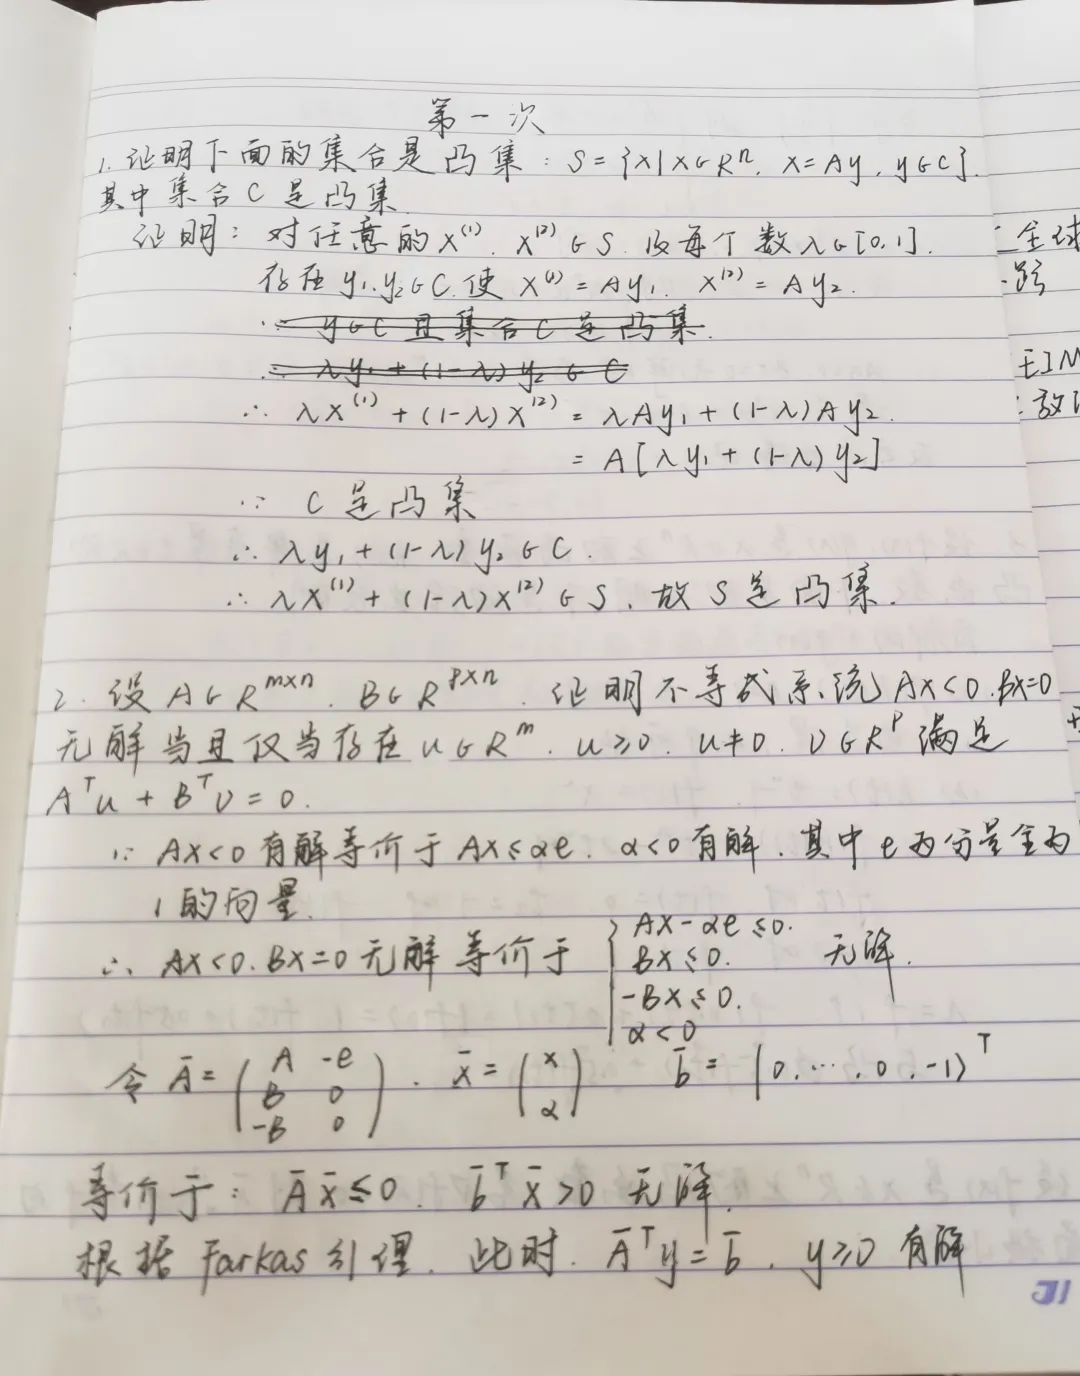 第一次
1. 证明下面的集合是凸集：S={x|x∈Rⁿ, x=Ay, y∈C}.
其中集合C是凸集.
证明：对任意的x⁽¹⁾, x⁽²⁾∈S 及每个数λ∈[0,1].
存在y₁,y₂∈C,使 x⁽¹⁾=Ay₁, x⁽²⁾=Ay₂.
∵ y∈C且集合C是凸集.
∴ λy₁+(1-λ)y₂∈C
∴ λx⁽¹⁾+(1-λ)x⁽²⁾=λAy₁+(1-λ)Ay₂.
=A[λy₁+(1-λ)y₂]
∵ C是凸集
∴ λy₁+(1-λ)y₂∈C.
∴ λx⁽¹⁾+(1-λ)x⁽²⁾∈S, 故S是凸集.
2. 设A∈Rᵐˣⁿ, B∈Rᵖˣⁿ, 证明不等式系统Ax<0,Bx=0
无解当且仅当存在u∈Rᵐ, u≥0, u≠0, υ∈Rᵖ满足
Aᵀu+Bᵀυ=0.
∵ Ax<0有解等价于Ax≤αe, α<0有解, 其中e为分量全为
1的向量.
∴ Ax<0, Bx=0无解 等价于 { Ax-αe≤0. Bx≤0. -Bx≤0. α<0 无解.
令 Ā=(A -e
B 0
-B 0), x̄=(x
α) b̄=(0,⋯,0,-1)ᵀ
等价于：Āx̄≤0, b̄ᵀx̄>0 无解.
根据Farkas引理, 此时, Āᵀy=b̄, y≥0 有解
全球